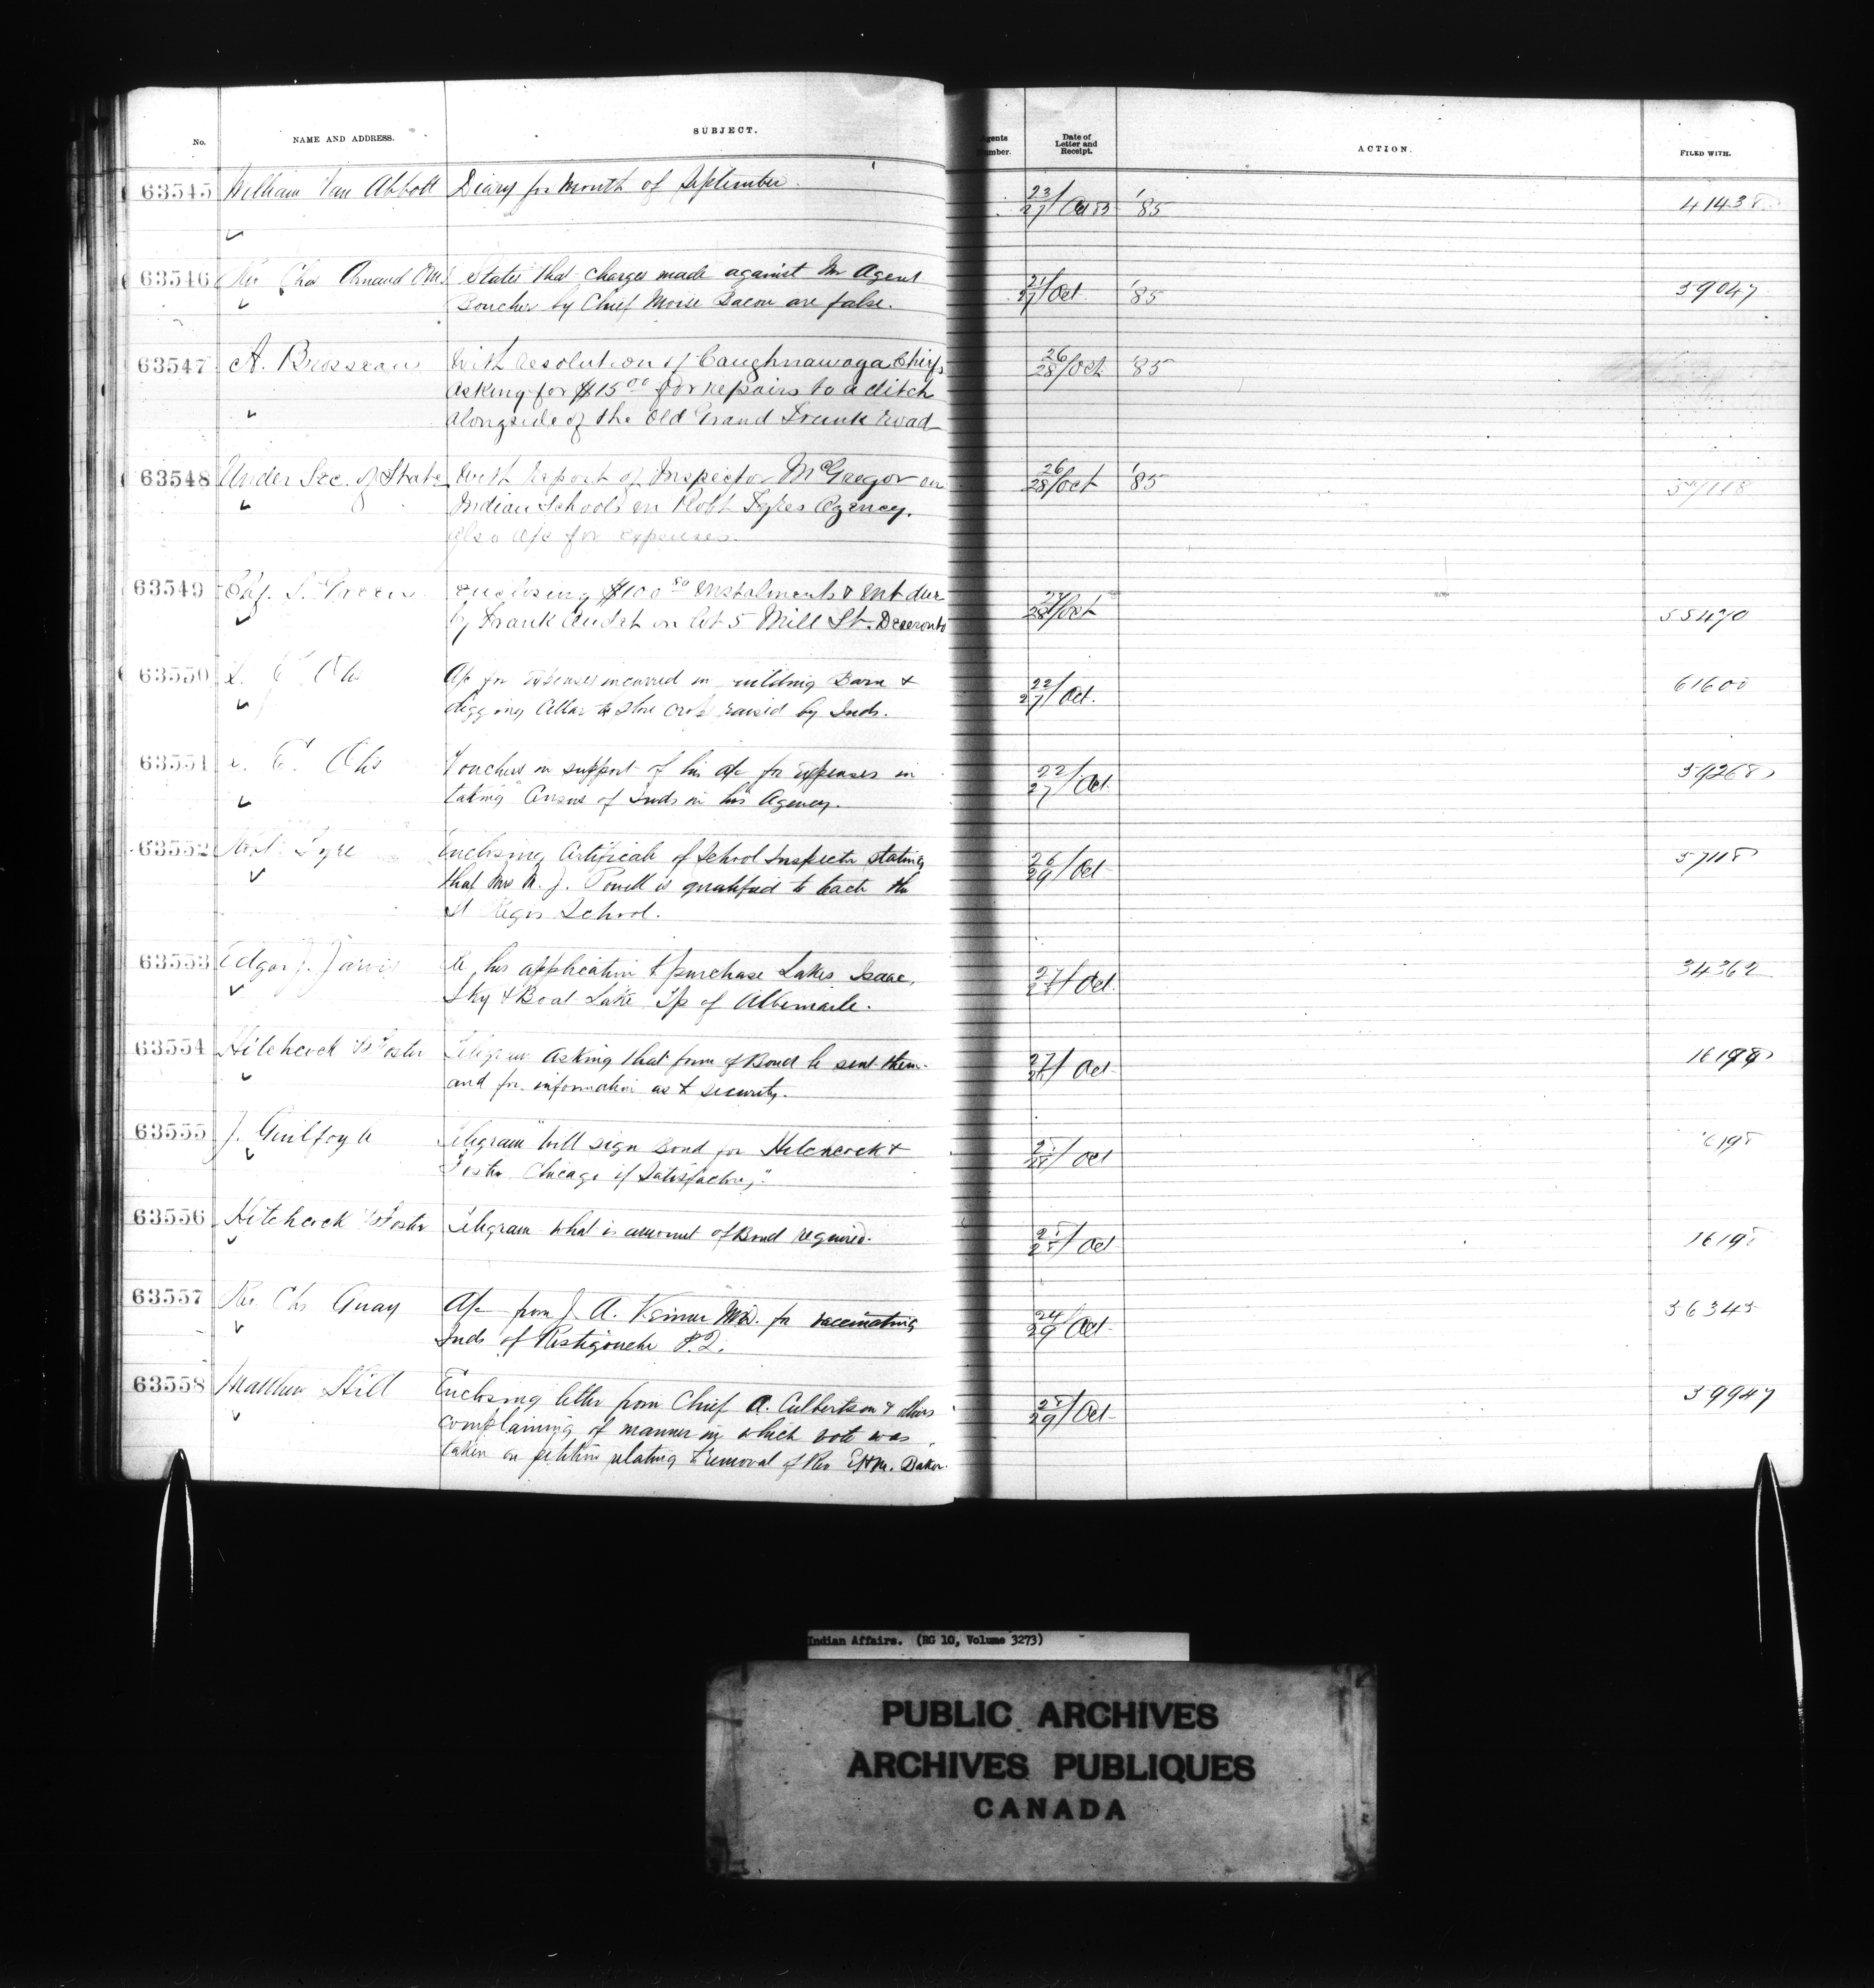 No. NAME AND ADDRESS. SUBJECT. Agents Number. Date of Letter and Receipt. ACTION. FILED WITH.
63545 William Van Abbott Diary for Month of September. 23/27 Oct '85
63546 Rev Chas Arnaud States that charges made against Mr Agent 21/27 Oct '85 39047
Boucher by Chief Moise Bacon are false.
63547 A. Brosseau With resolution of Caughnawaga Chiefs 26/28 Oct '85
asking for $15.00 for repairs to a ditch
alongside of the Old Grand Trunk road
63548 Under Sec. of State With report of Inspector McGregor on 26/28 Oct '85
Indian Schools on Agency.
also a/c for expenses.
63549 enclosing $100 Instalments & Int due 28/Oct 55470
by Frank on lot 5 Mill St. Deseronto
63550 L. E. Otis A/c for expenses incurred in building Barn & 22/27 Oct. 61600
digging Cellar to store crops raised by Inds.
63551 L. E. Otis Vouchers in support of his a/c for expenses in 22/27 Oct.
taking Census of Inds in his Agency.
63552 Enclosing Certificate of School Inspector stating 26/29 Oct
that Mrs M. J. Powell is qualified to teach the
St Regis School.
63553 Edgar J. Jarvis Re his application to purchase Lakes Isaac, Oct. 34362
Sky & Boat Lake Tp of Albemarle.
63554 Hitchcock & Foster Telegram asking that form of Bond be sent them Oct
and for information as to security.
63555 J. Guilfoyle Telegram "Will sign Bond for Hitchcock & Oct
Foster Chicago if Satisfactory."
63556 Hitchcock & Foster Telegram What is amount of Bond required. Oct
63557 Rev. Chs Guay A/c from J. A. M.D. for vaccinating 24/29 Oct 36345
Inds of Ristigouche P.Q.
63558 Matthew Hill Enclosing letter from Chief A. Culbertson & others 29 Oct 39947
complaining of manner in which vote was
taken on petition relating to removal of Rev E.H.M. Baker.
Indian Affairs. (RG 10, Volume 3273)
PUBLIC ARCHIVES
ARCHIVES PUBLIQUES
CANADA